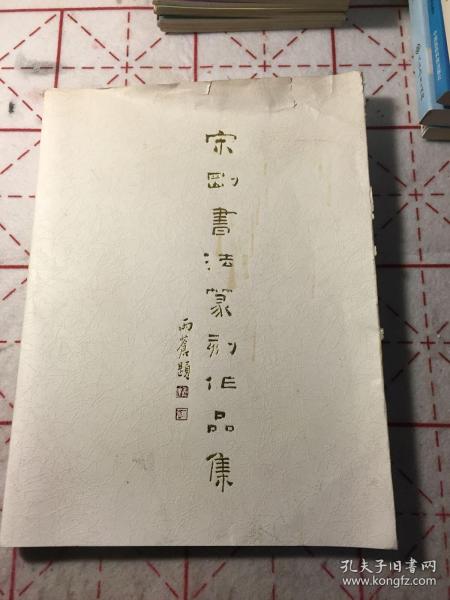 宗剛書法篆刻作品集
雨蒼題
孔夫子旧书网
www.kongfz.com